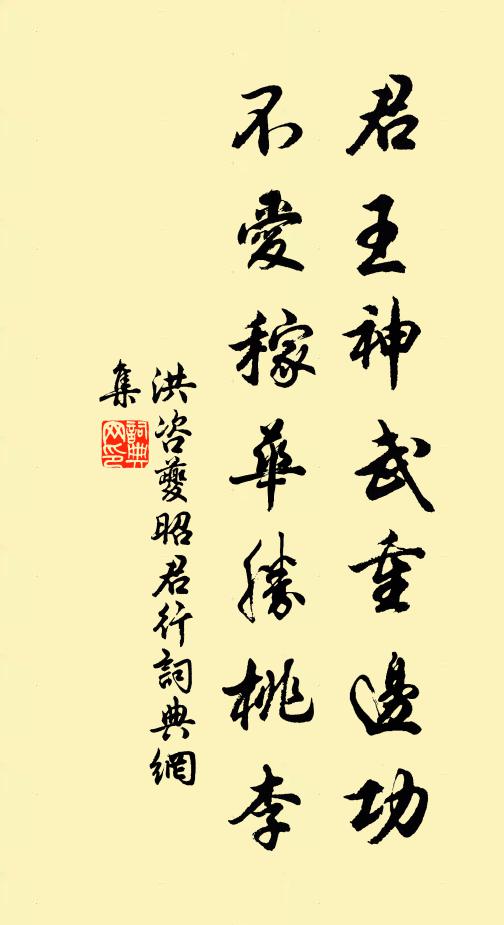 君王神武重邊功
不愛穠華勝桃李
洪咨夔昭君行詞典網
集
詞典
网印